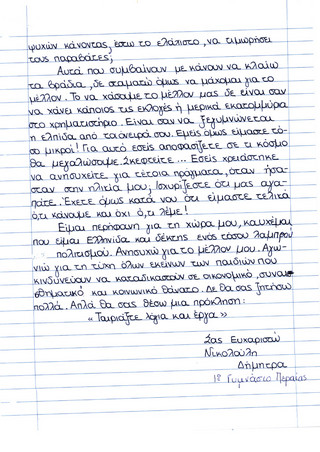 ψυχών κάνοντας, έστω το ελάχιστο, να τιμωρήσει
τους παραβάτες;
Αυτά που συμβαίνουν με κάνουν να κλαίω
τα βράδια, δε σταματώ όμως να μάχομαι για το
μέλλον. Το να χάσουμε το μέλλον μας δε είναι σαν
να χάνει κάποιος τις εκλογές ή μερικά εκατομμύρια
στο χρηματιστήριο. Είναι σαν να ξεγυμνώνεται
η ελπίδα από τα όνειρά σου. Εμείς όμως είμαστε τό-
σο μικροί! Για αυτό εσείς αποφασίζετε σε τι κόσμο
θα μεγαλώσουμε. Σκεφτείτε... Εσείς χρειάστηκε
να ανησυχείτε για τέτοια πράγματα, όταν ήσα-
σταν στην ηλικία μου; Ισχυρίζεστε ότι μας αγα-
πάτε. Έχετε όμως κατά νου ότι είμαστε τελικά
ό,τι κάνουμε και όχι ό,τι λέμε!
Είμαι περήφανη για τη χώρα μου, καυχιέμαι
που είμαι Ελληνίδα και δέκτης ενός τόσου λαμπρού
πολιτισμού. Ανησυχώ για το μέλλον μου. Αγω-
νιώ για τη τύχη όλων εκείνων των παιδιών που
κινδυνεύουν να καταδικαστούν σε οικονομικό, συναι-
σθηματικό και κοινωνικό θάνατο. Δε θα σας ζητήσω
πολλά. Απλά θα σας θέσω μια πρόκληση:
«Ταιριάξτε λόγια και έργα»
Σας Ευχαριστώ
Νικολούλη
Δήμητρα
1º Γυμνάσιο Περαίας